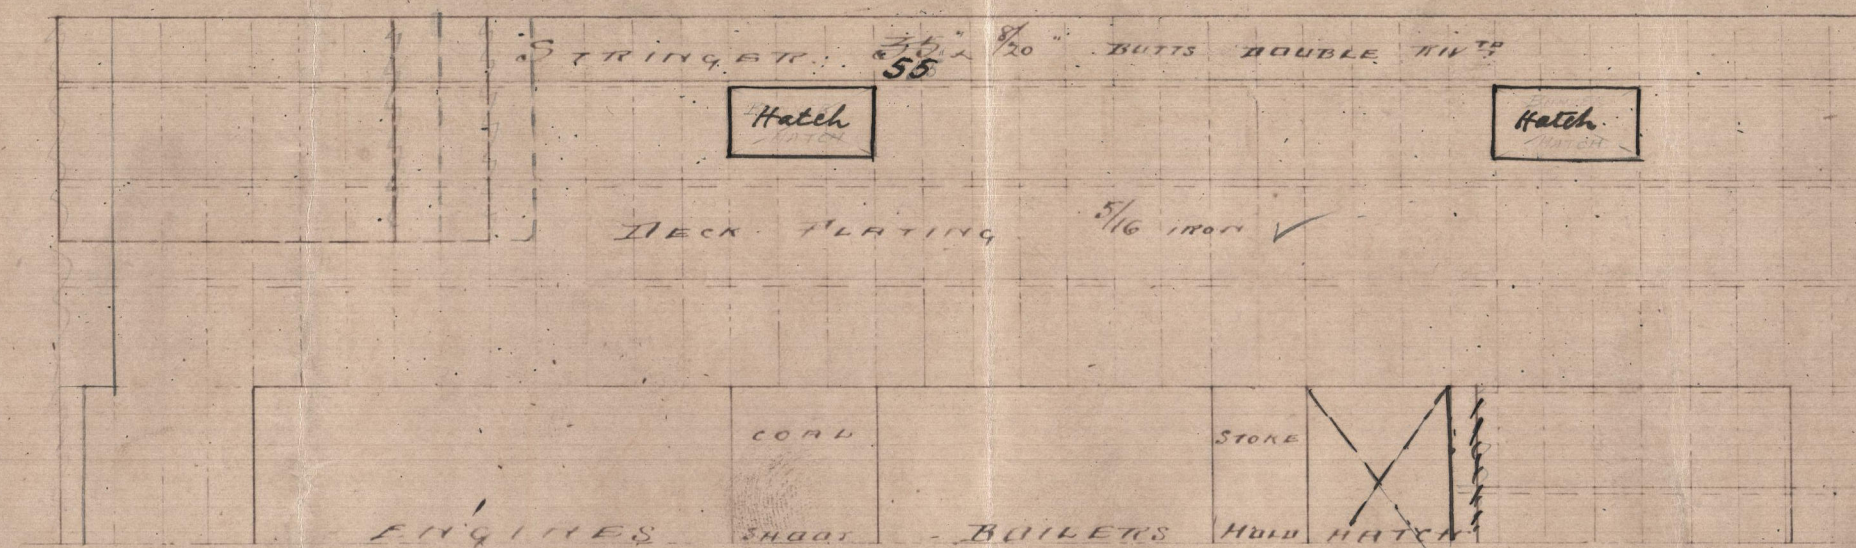 STRINGER. 55 8/20" BUTTS DOUBLE RIVTD
Hatch
Hatch
DECK PLATING 5/16 IRON ✓
COAL
STOKE
ENGINES SHOOT BOILERS HOLD HATCH